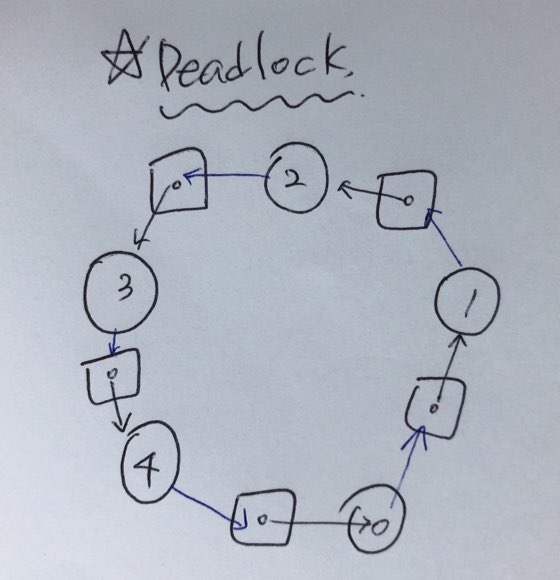 ☆ Deadlock.
2
3
1
4
0